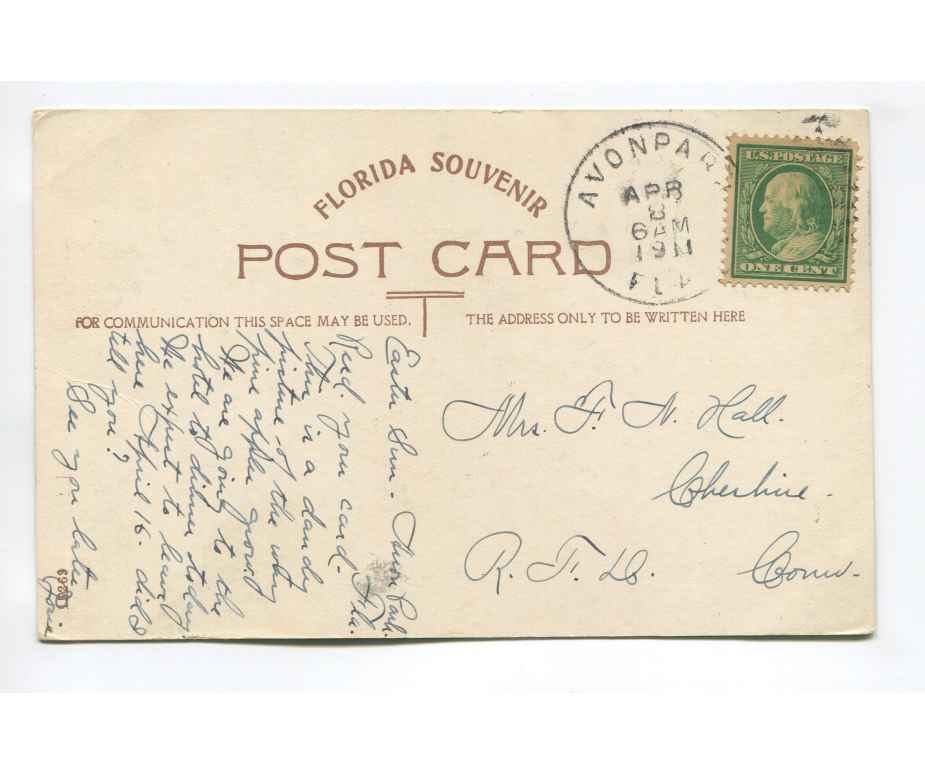 FLORIDA SOUVENIR
POST CARD
FOR COMMUNICATION THIS SPACE MAY BE USED.
THE ADDRESS ONLY TO BE WRITTEN HERE
AVONPARK
APR
8
6 AM
1911
FLA
U.S. POSTAGE
ONE CENT
Mrs. F. N. Hall.
Cheshire.
R. F. D. Conn.
Easter Sun. Avon Park.
Fla.
Recd. your card.
This is a dandy
picture of the way
pine apples grow
We are going to the
hotel to dinner today.
We expect to leave
here April 16. did I
tell you?
See you later